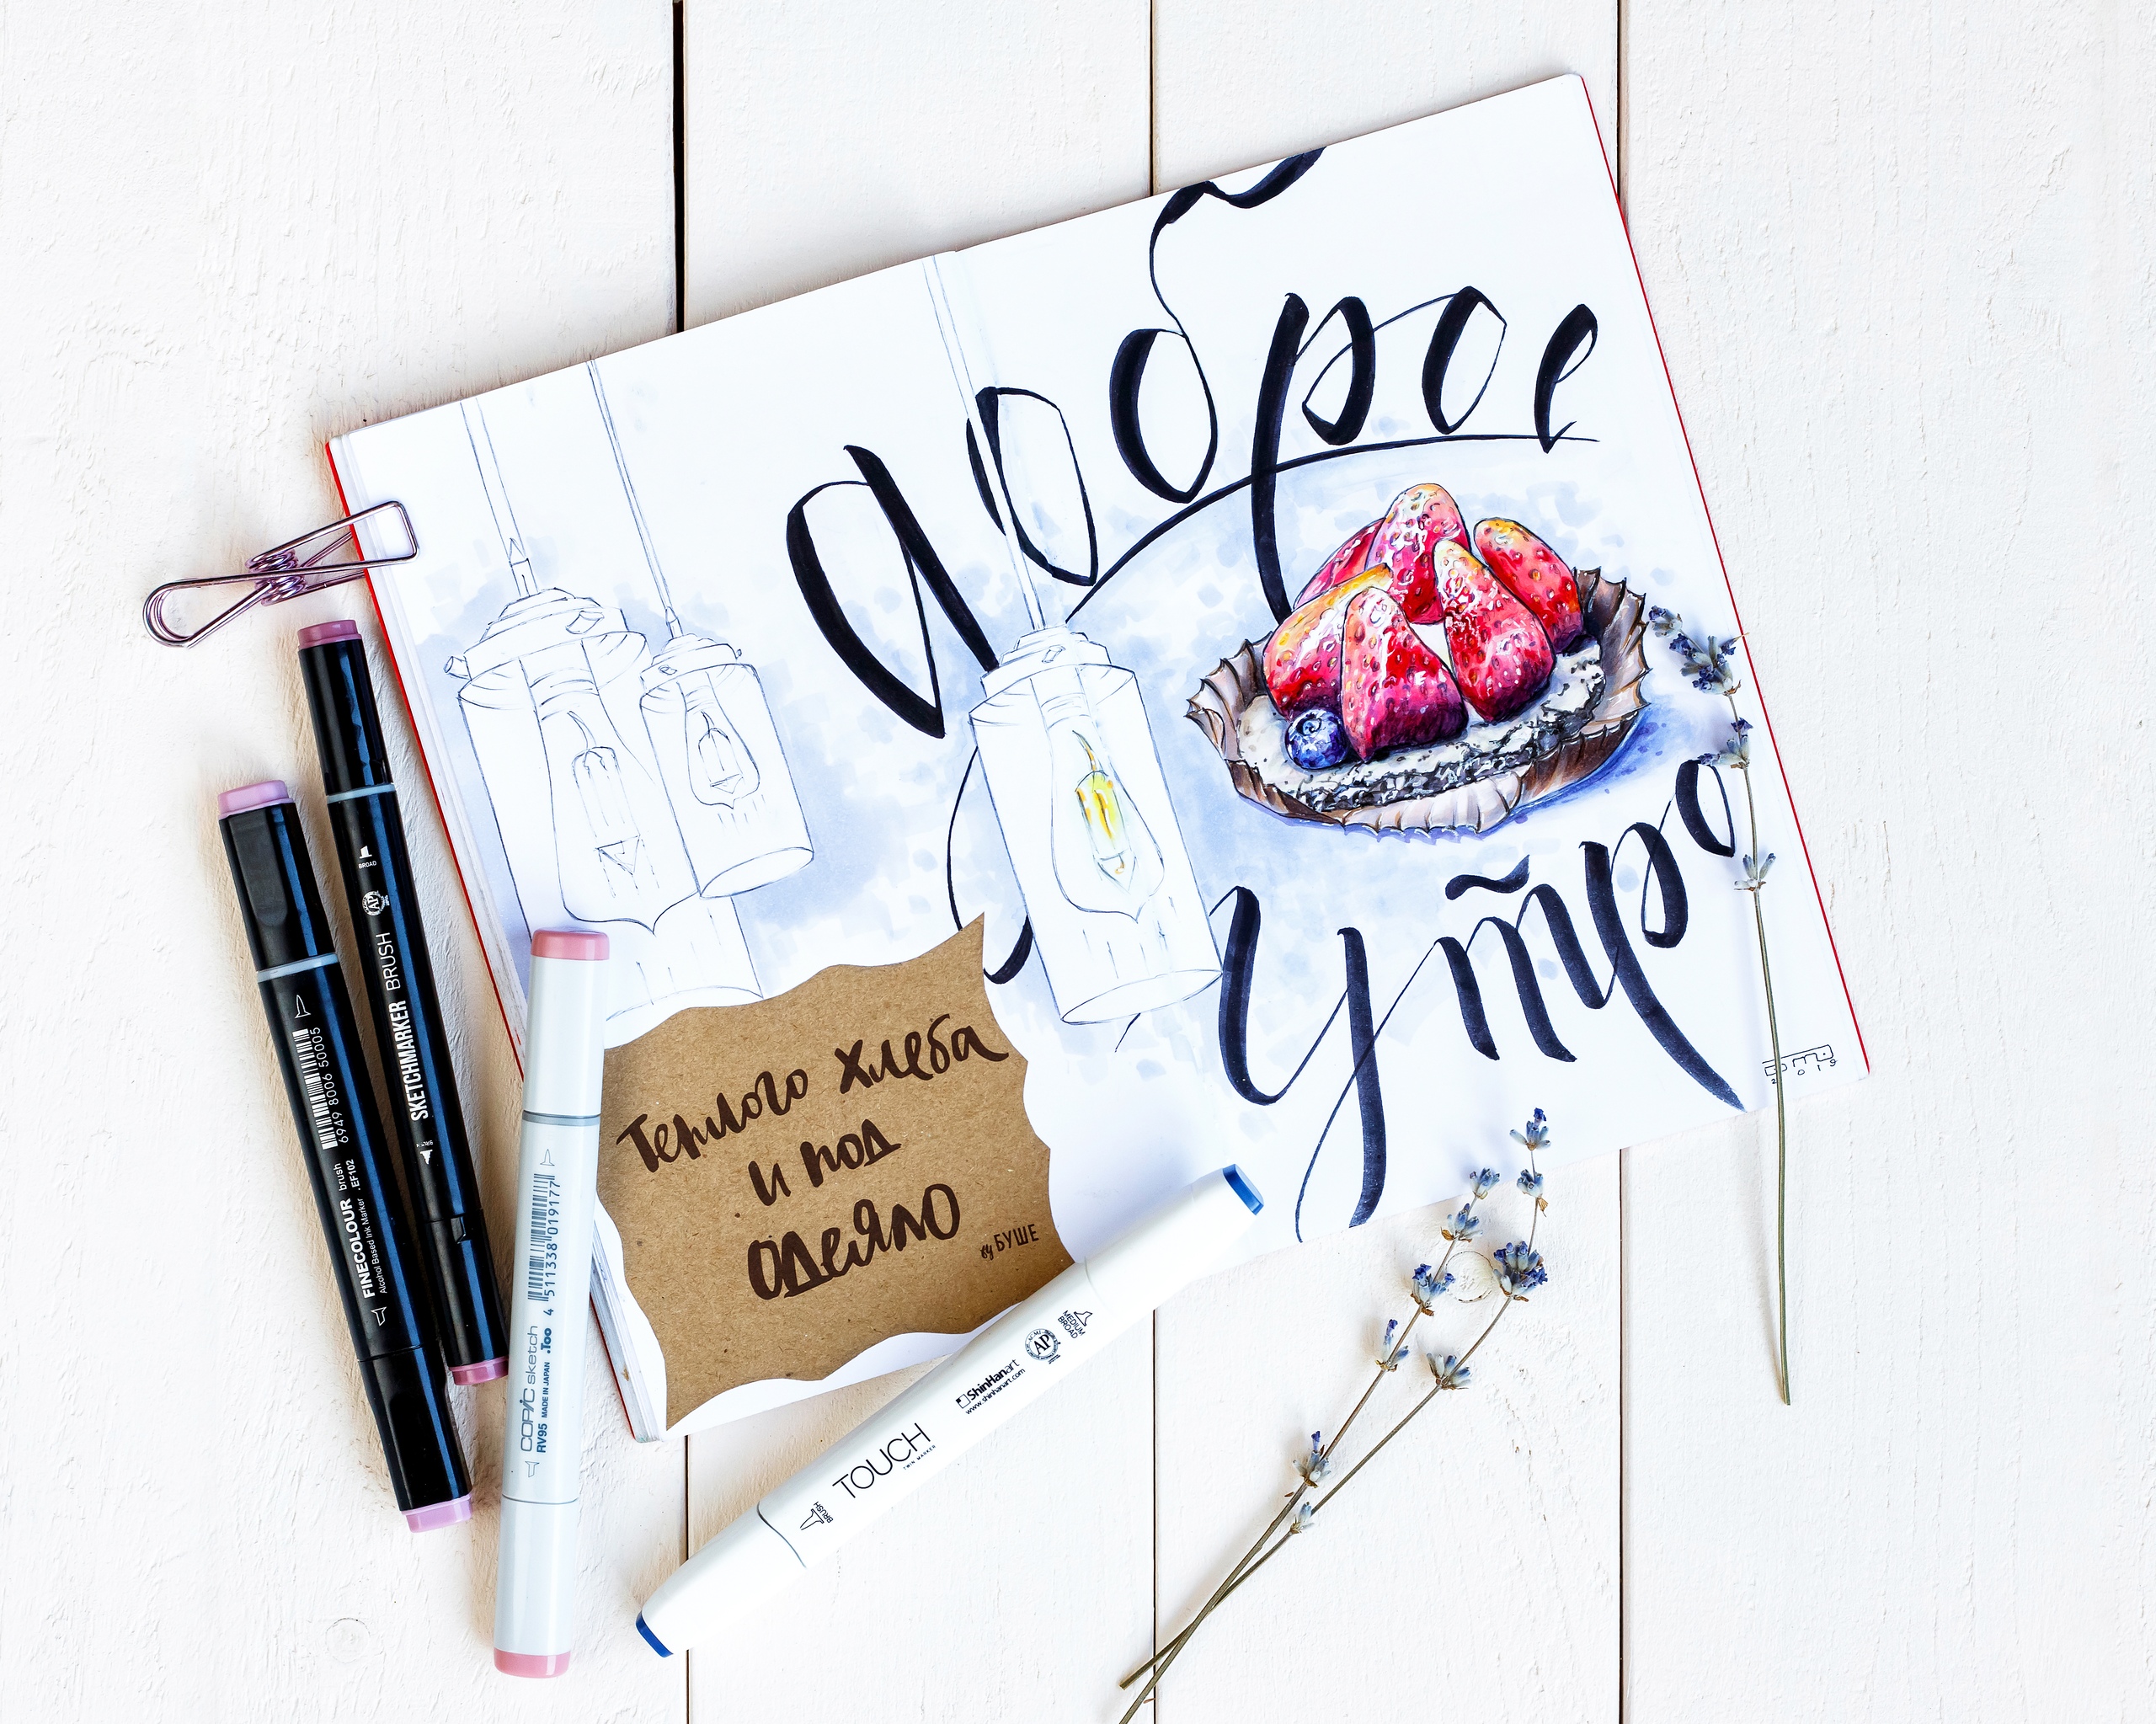 доброе
утро
Теплого хлеба
и под
одеяло
by БУШЕ
BROAD
SKETCHMARKER BRUSH
6949 8006 50005
FINECOLOUR brush
Alcohol Based Ink Marker .EF102
4 511338 019177
COPIC sketch .Too
RV95 MADE IN JAPAN
MEDIUM
BROAD
AP
ShinHanart
www.shinhanart.com
TOUCH
TWIN MARKER
BRUSH
2019